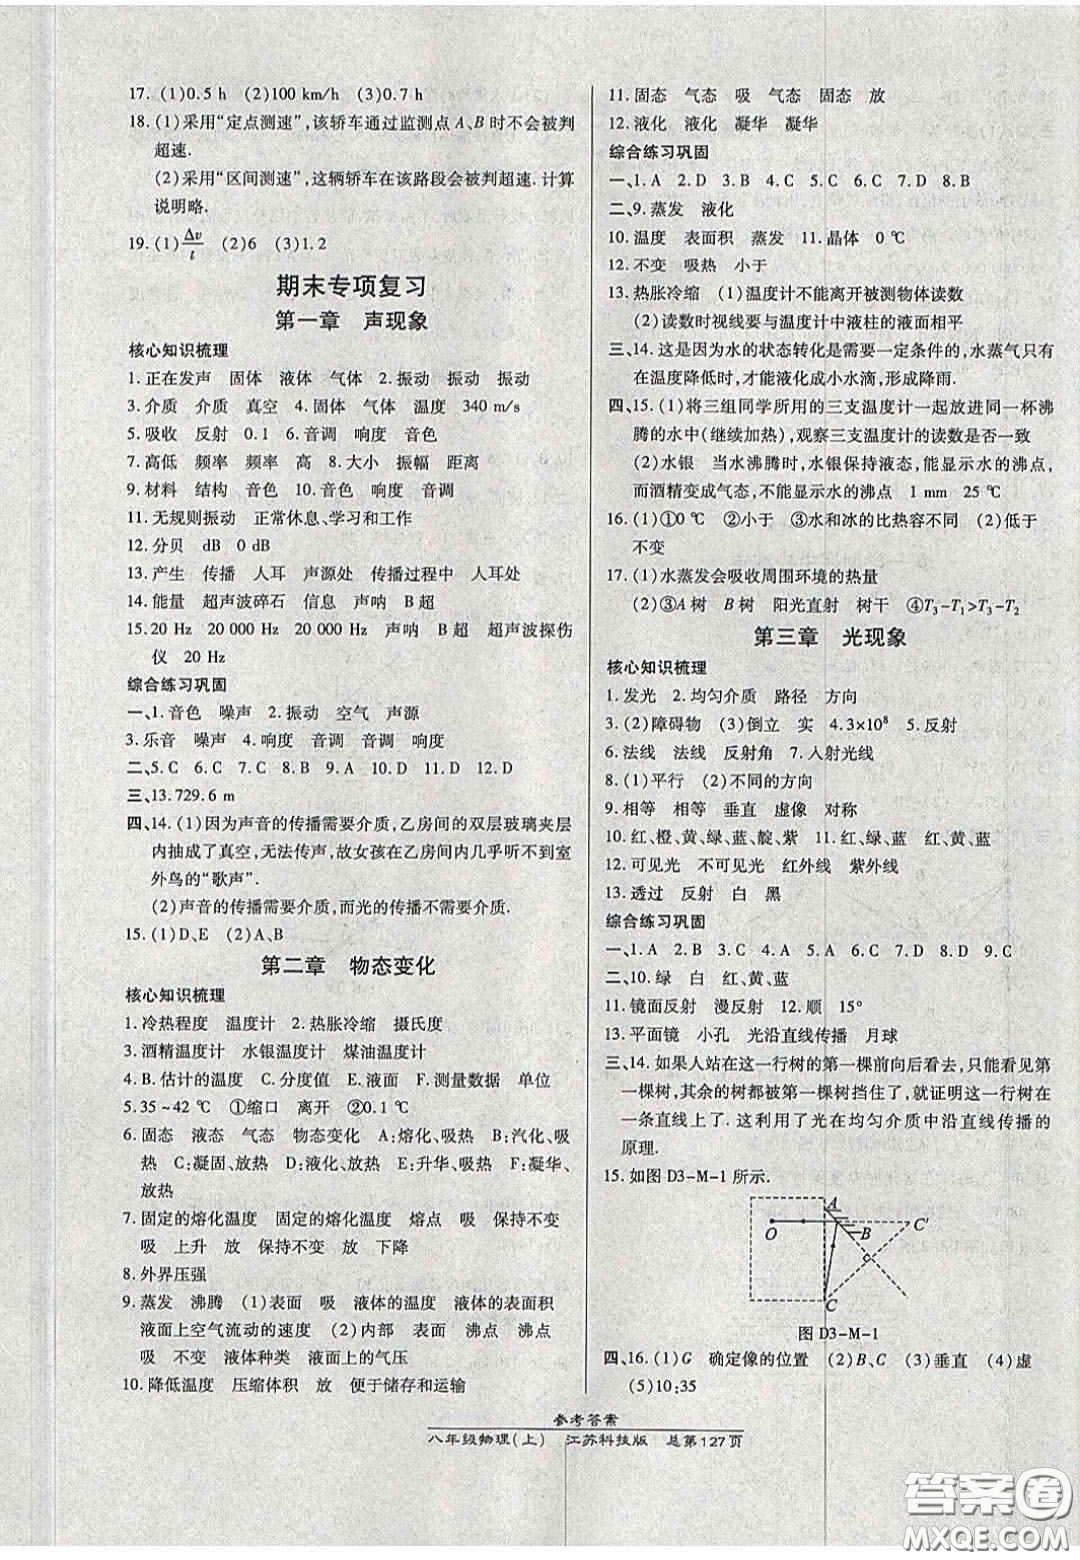 17. (1)0.5 h　(2)100 km/h　(3)0.7 h
18. (1)采用“定点测速”,该轿车通过监测点 A、B 时不会被判
超速.
(2)采用“区间测速”,这辆轿车在该路段会被判超速. 计算
说明略.
19. (1)Δv/t　(2)6　(3)1.2
期末专项复习
第一章　声现象
核心知识梳理
1. 正在发声　固体　液体　气体 2. 振动　振动　振动
3. 介质　介质　真空 4. 固体　气体　温度　340 m/s
5. 吸收　反射　0.1 6. 音调　响度　音色
7. 高低　频率　频率　高 8. 大小　振幅　距离
9. 材料　结构　音色 10. 音色　响度　音调
11. 无规则振动　正常休息、学习和工作
12. 分贝　dB　0 dB
13. 产生　传播　人耳　声源处　传播过程中　人耳处
14. 能量　超声波碎石　信息　声呐　B 超
15. 20 Hz　20 000 Hz　20 000 Hz　声呐　B 超　超声波探伤
仪　20 Hz
综合练习巩固
一、1. 音色　噪声 2. 振动　空气　声源
3. 乐音　噪声 4. 响度　音调　音调　响度
二、5. C 6. C 7. C 8. B 9. A 10. D 11. D 12. D
三、13. 729.6 m
四、14. (1)因为声音的传播需要介质,乙房间的双层玻璃夹层
内抽成了真空,无法传声,故女孩在乙房间内几乎听不到室
外鸟的“歌声”.
(2)声音的传播需要介质,而光的传播不需要介质.
15. (1)D、E　(2)A、B
第二章　物态变化
核心知识梳理
1. 冷热程度　温度计 2. 热胀冷缩　摄氏度
3. 酒精温度计　水银温度计　煤油温度计
4. B. 估计的温度　C. 分度值　E. 液面　F. 测量数据　单位
5. 35～42 ℃　①缩口　离开　②0.1 ℃
6. 固态　液态　气态　物态变化　A:熔化、吸热　B:汽化、吸
热　C:凝固、放热　D:液化、放热　E:升华、吸热　F:凝华、
放热
7. 固定的熔化温度　固定的熔化温度　熔点　吸　保持不变
吸　上升　放　保持不变　放　下降
8. 外界压强
9. 蒸发　沸腾　(1)表面　吸　液体的温度　液体的表面积
液面上空气流动的速度　(2)内部　表面　沸点　沸点
吸　不变　液体种类　液面上的气压
10. 降低温度　压缩体积　放　便于储存和运输
11. 固态　气态　吸　气态　固态　放
12. 液化　液化　凝华　凝华
综合练习巩固
一、1. A 2. D 3. B 4. C 5. C 6. C 7. D 8. B
二、9. 蒸发　液化
10. 温度　表面积　蒸发 11. 晶体　0 ℃
12. 不变　吸热　小于
13. 热胀冷缩　(1)温度计不能离开被测物体读数
(2)读数时视线要与温度计中液柱的液面相平
三、14. 这是因为水的状态转化是需要一定条件的,水蒸气只有
在温度降低时,才能液化成小水滴,形成降雨.
四、15. (1)将三组同学所用的三支温度计一起放进同一杯沸
腾的水中(继续加热),观察三支温度计的读数是否一致
(2)水银　当水沸腾时,水银保持液态,能显示水的沸点,
而酒精变成气态,不能显示水的沸点　1 mm　25 ℃
16. (1)①0 ℃　②小于　③水和冰的比热容不同　(2)低于
不变
17. (1)水蒸发会吸收周围环境的热量
(2)③A 树　B 树　阳光直射　树干　④T₃-T₁>T₃-T₂
第三章　光现象
核心知识梳理
1. 发光　2. 均匀介质　路径　方向
3. (2)障碍物　(3)倒立　实　4. 3×10⁸　5. 反射
6. 法线　法线　反射角　7. 入射光线
8. (1)平行　(2)不同的方向
9. 相等　相等　垂直　虚像　对称
10. 红、橙、黄、绿、蓝、靛、紫　11. 红、绿、蓝
12. 可见光　不可见光　红外线　紫外线
13. 透过　反射　白　黑
综合练习巩固
一、1. A 2. B 3. C 4. A 5. A 6. C 7. D 8. D 9. C
二、10. 绿　白　红、黄、蓝
11. 镜面反射　漫反射　12. 顺　15°
13. 平面镜　小孔　光沿直线传播　月球
三、14. 如果人站在这一行树的第一棵前向后看去,只能看见第
一棵树,其余的树都被第一棵树挡住了,就证明这一行树在
一条直线上了. 这利用了光在均匀介质中沿直线传播的
原理.
15. 如图 D3-M-1 所示.
A
O
B
C′
C
图 D3-M-1
四、16. (1)G　确定像的位置　(2)B、C　(3)垂直　(4)虚
(5)10:35
参考答案
八年级物理(上)　江苏科技版　总第127页
答案圈
MXQE.COM